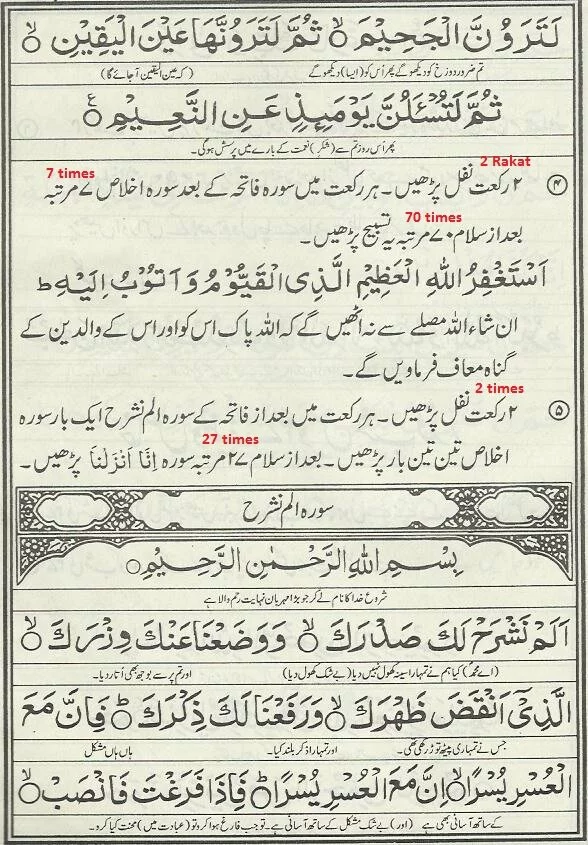 لَتَرَوُنَّ الْجَحِيْمَ ۙ ثُمَّ لَتَرَوُنَّهَا عَيْنَ الْيَقِيْنِ ۙ
تم ضرور دوزخ کو دیکھو گے پھر اُس کو (ایسا) دیکھو گے (کہ عین الیقین آ جائے گا)
ثُمَّ لَتُسْـَٔلُنَّ يَوْمَئِذٍ عَنِ النَّعِيْمِ ۠
پھر اُس روز تم سے (شکر) نعمت کے بارے میں پرسش ہو گی۔
2 Rakat
7 times
۴ ۲ رکعت نفل پڑھیں۔ ہر رکعت میں سورہ فاتحہ کے بعد سورہ اخلاص ۷ مرتبہ
70 times
بعد از سلام ۷۰ مرتبہ یہ تسبیح پڑھیں۔
اَسْتَغْفِرُ اللّٰهَ الْعَظِيْمِ الَّذِى الْقَيُّوْمُ وَاَتُوْبُ اِلَيْهِ ط
ان شاء اللہ مصلے سے نہ اٹھیں گے کہ اللہ پاک اس کو اور اس کے والدین کے
گناہ معاف فرماویں گے۔
2 times
۵ ۲ رکعت نفل پڑھیں۔ ہر رکعت میں بعد از فاتحہ کے سورہ الم نشرح ایک بار سورہ
27 times
اخلاص تین تین بار پڑھیں۔ بعد از سلام ۲۷ مرتبہ سورہ اِنَّا اَنْزَلْنَا پڑھیں۔
سورہ الم نشرح
بِسْمِ اللّٰهِ الرَّحْمٰنِ الرَّحِيْمِ
شروع خدا کا نام لے کر جو بڑا مہربان نہایت رحم والا ہے
اَلَمْ نَشْرَحْ لَكَ صَدْرَكَ ۙ وَوَضَعْنَا عَنْكَ وِزْرَكَ ۙ
(اے محمدؐ) کیا ہم نے تمہارا سینہ کھول نہیں دیا (بے شک کھول دیا) اور تم پر سے بوجھ بھی اُتار دیا۔
الَّذِىْٓ اَنْقَضَ ظَهْرَكَ ۙ وَرَفَعْنَا لَكَ ذِكْرَكَ ط فَاِنَّ مَعَ
جس نے تمہاری پیٹھ توڑ رکھی تھی۔ اور تمہارا ذکر بلند کیا۔ ہاں ہاں مشکل
الْعُسْرِ يُسْرًا ۙ اِنَّ مَعَ الْعُسْرِ يُسْرًا ط فَاِذَا فَرَغْتَ فَانْصَبْ ۙ
کے ساتھ آسانی بھی ہے (اور) بے شک مشکل کے ساتھ آسانی ہے۔ تو جب فارغ ہوا کرو تو (عبادت میں) محنت کیا کرو۔